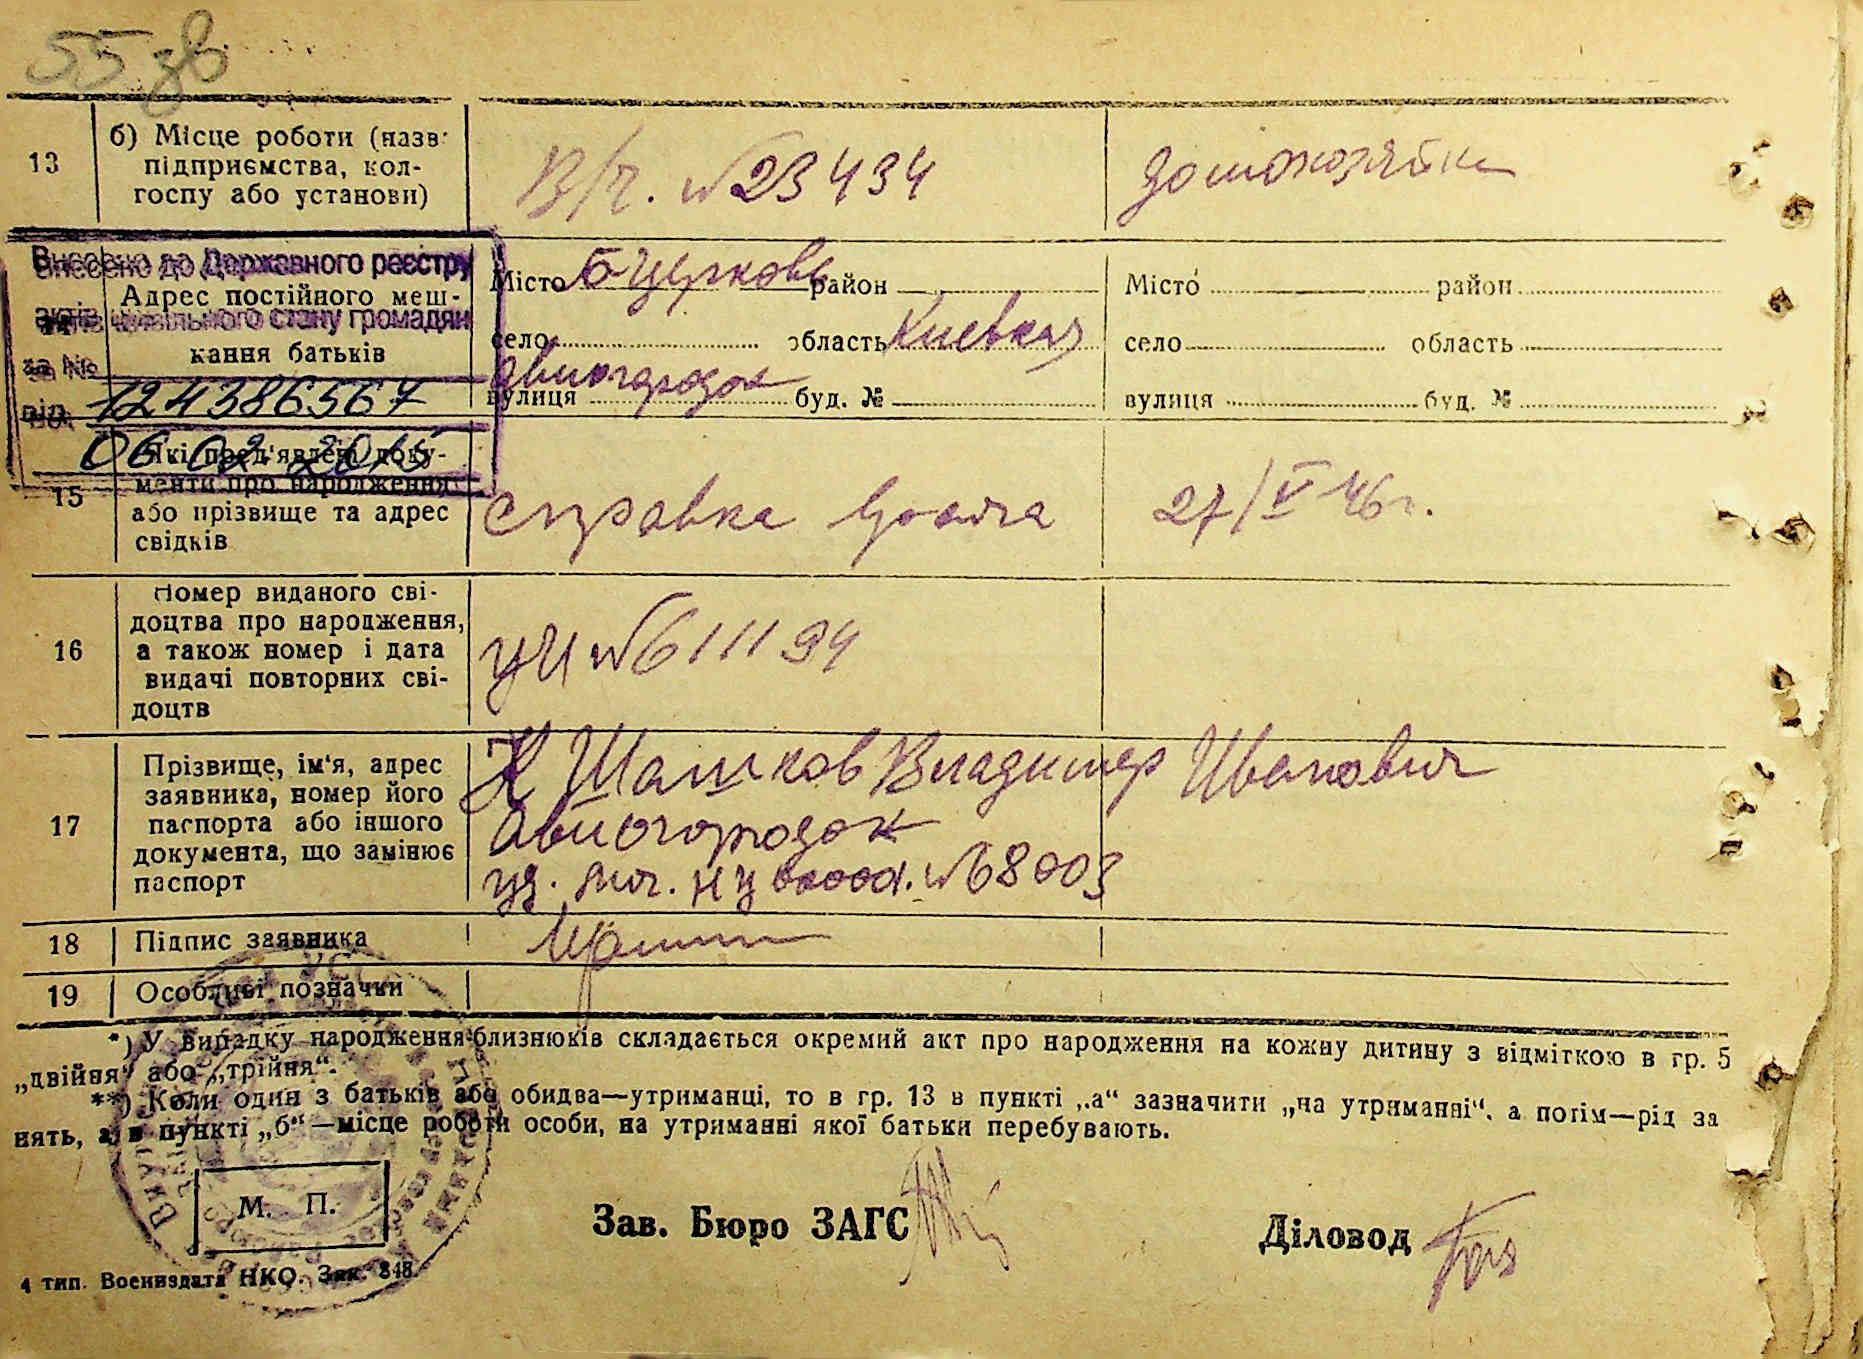 55 зв
13
б) Місце роботи (назв
підприємства, кол-
госпу або установи)
В/ч. №23434
домохозяйка
Внесено до Державного реєстру
актів цивільного стану громадян
за №
124386567
від
06.02.2015
Адрес постійного меш-
кання батьків
Місто Б Церковь район
село область Киевская
Авиогородок
вулиця буд. №
Місто район
село область
вулиця буд. №
15
Які пред'явлені доку-
менти про народження
або прізвище та адрес
свідків
справка
27/V 46 г.
16
Номер виданого сві-
доцтва про народження,
а також номер і дата
видачі повторних сві-
доцтв
№611194
17
Прізвище, ім'я, адрес
заявника, номер його
паспорта або іншого
документа, що замінює
паспорт
Шашков Владимир Иванович
Авиогородок
уд. лич. №68003
18
Підпис заявника
19
Особливі позначки
*) У випадку народження близнюків складається окремий акт про народження на кожну дитину з відміткою в гр. 5
„двійня“ або „трійня“.
**) Коли один з батьків або обидва—утриманці, то в гр. 13 в пункті „а“ зазначити „на утриманні“, а потім—рід за
нять, а в пункті „б“—місце роботи особи, на утриманні якої батьки перебувають.
М. П.
Зав. Бюро ЗАГС
Діловод
4 тип. Воениздата НКО. Зак. 848.